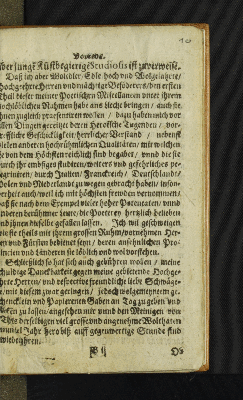 Vorrede.
der junge Kunstbegierige Studiosus ist zu verweisen.
Daß ich aber WolEdler, Edle hoch und Wolgelahrte,
hochgeehrte Herren und mächtige Beföderer, den ersten
Theil dieser meiner Poetischen Miscellaneen unter ihrem
hochlöblichen Nahmen habe ans liecht bringen / auch sie
ihnen zugleich præsentiren wollen / dazu haben mich vor
allen Dingen gereitzet deren Heroische Tugenden / vor-
treffliche Geschickligkeit / herrlicher Verstand / nebenst
vielen anderen hochrühmlichen Qualitäten / mit welchen
sie von dem Höchsten reichlich sind begabet / und die sie
durch ihr embsiges studieren / weiteres und gefehrliches pe-
regriniren / durch Italien / Franckreich / Deutschlandt /
Polen und Niederland zu wegen gebracht haben; inson-
derheit auch / weil ich mit höchsten freuden vernommen /
daß sie nach dem Exempel vieler hoher Potentaten / und
anderen berühmter leute / die Poeterey hertzlich belieben
und ihnen dieselbe gefallen lassen. Ich wil geschweigen
die sie theils mit ihrem grossen Ruhm / vornehmen Her-
ren und Fürsten bedienet seyn / deren ansehnlichen Pro-
vincien und Länderen sie löblich und wol vorstehen.
Schließlich so hat sich auch gebühren wollen / meine
schuldige Danckbarkeit gegen meine gebietende Hochge-
ehrte Herren / und respective freundliche liebe Schwäge-
re / mit diesem zwar geringen / jedoch wolgemeyntem ge-
schencklein und Papierenen Gaben an Tag zu geben und
blicken zu lassen / angesehen mir und den Meinigen von
Ihro derselbigen viel grosse und angenehme Wolthaten
nun viel Jahr hero biß auff gegenwertige Stunde sind
wiederfahren.
B ij